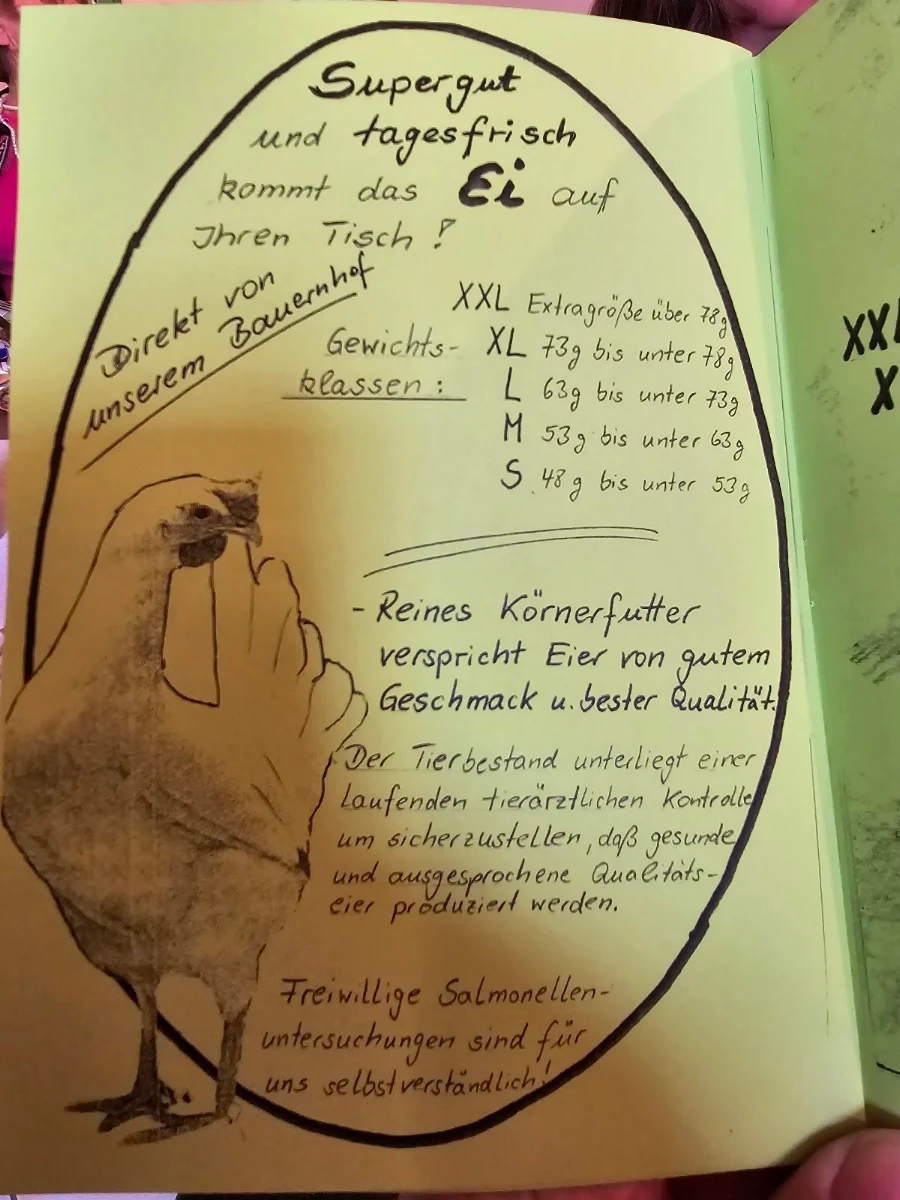 Supergut
und tagesfrisch
kommt das Ei auf
Ihren Tisch!
Direkt von
unserem Bauernhof
Gewichts-
klassen:
XXL Extragröße über 78g
XL 73g bis unter 78g
L 63g bis unter 73g
M 53g bis unter 63g
S 48g bis unter 53g
- Reines Körnerfutter
verspricht Eier von gutem
Geschmack u. bester Qualität.
Der Tierbestand unterliegt einer
laufenden tierärztlichen Kontrolle
um sicherzustellen, daß gesunde
und ausgesprochene Qualitäts-
eier produziert werden.
Freiwillige Salmonellen-
untersuchungen sind für
uns selbstverständlich!
XXL
X